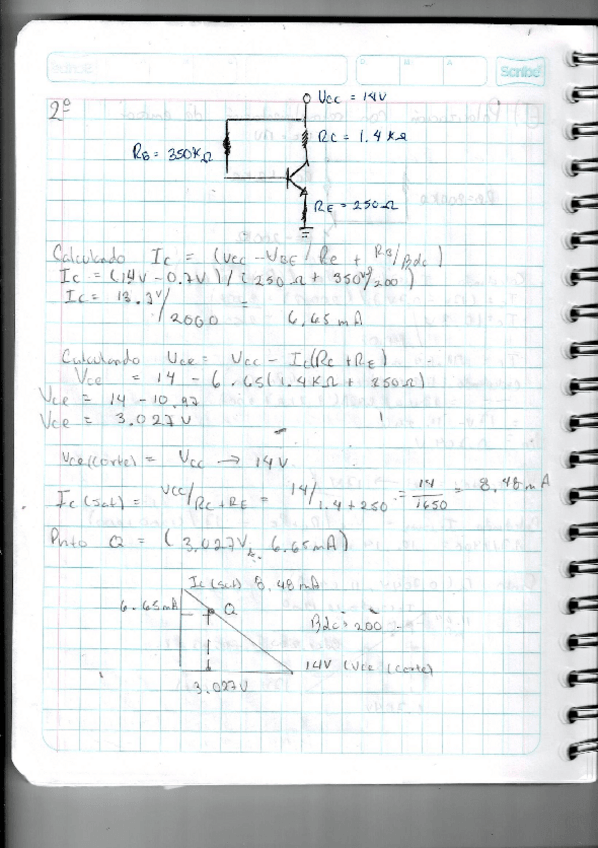 Scribe
2º
Vcc = 14V
RC = 1.4 KΩ
RB = 350KΩ
RE = 250Ω
Calculando Ic = (Vcc - VBE / Re + RB/Bdc)
Ic = (14V - 0.7V) / (250 Ω + 350K/200)
Ic = 13.3V/2000 = 6.65 mA
Calculando Vce = Vcc - Ic(Rc + RE)
Vce = 14 - 6.65(1.4KΩ + 250Ω)
Vce = 14 - 10.97
Vce = 3.027 V
Vce(corte) = Vcc → 14V
Ic (sat) = Vcc/Rc + RE = 14/1.4 + 250 = 14/1650 = 8.48 mA
Pnto Q = (3.027V, 6.65mA)
Ic (sat) 8.48 mA
6.65mA
Q
Bdc = 200
14V (Vce (corte)
3.027V